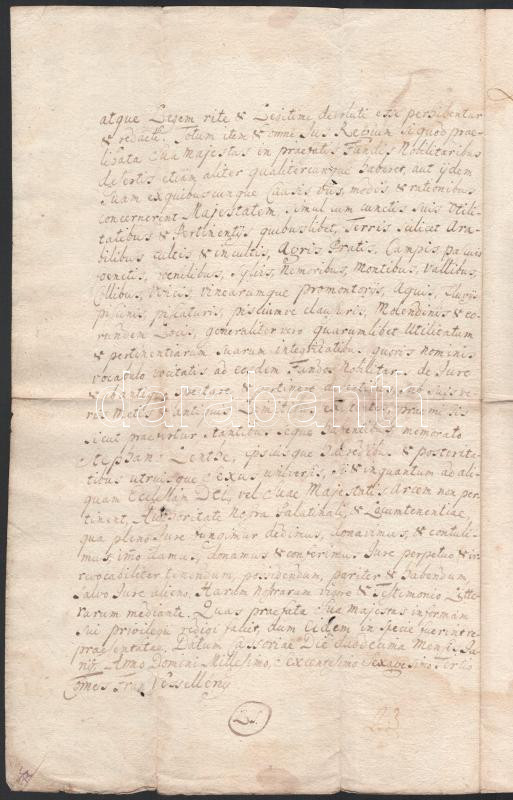 atque Desem rite & Legitime devoluti esse perhibentur
& redacti. Totum item & omne Jus Regium si quod prae-
libata Sua Majestas in praefatis Fundis Nobilitaribus
desertis etiam aliter qualitercunque haberet, aut ijdem
suam exquibuscunque Causis vijs, modis & rationibus
concernerent Majestatem, simul cum cunctis suis Utili-
tatibus & Pertinentijs quibuslibet, Terris scilicet Ara-
bilibus cultis & incultis, Agris Pratis, Campis, pascuis
foenetis, foenilibus, Sylvis, Nemoribus, Montibus, Vallibus,
Collibus, Vineis, vinearumque promontorijs, Aquis, Fluvijs
piscinis, piscaturis, pisciumve clausuris, Molendinis & eo-
rundem Locis, generaliter vero quarumlibet Utilitatum
& pertinentiarum suarum integritatibus quovis nominis
vocabulo vocitatis ad eosdem Fundos Nobilitares de Jure
& ab antiquo spectare & pertinere debentibus, sub suis ve-
ris Metis & antiquis Limitibus existentibus praemissis
sicut praefertur stantibus seque habentibus memorato
Stephano ipsiusque Haeredibus & posterita-
tibus utriusque Sexus universis, si & inquantum ad ali-
quam Ecclesiam Dei, vel Suae Majestatis Arcem non per-
tinent, Authoritate Nostra Palatinali, & Locumtenentiae
qua pleno Jure fungimur dedimus, donavimus, & contuli-
mus, imo damus, donamus & conferimus Jure perpetuo & ir-
revocabiliter tenendum, possidendum, pariter & habendum,
Salvo Jure alieno. Harum nostrarum vigore & Testimonio Litte-
rarum mediante. Quas praefata Sua Majestas in formam
Sui privilegij redigi faciet, dum Eidem in specie fuerint re-
praesentatae. Datum Cassoviae Die duodecima Mensis Ja-
nij Anno Domini Millesimo, Sexcentesimo Sexagesimo Tertio
Comes Fran Vesselleny
LS.
darabanth